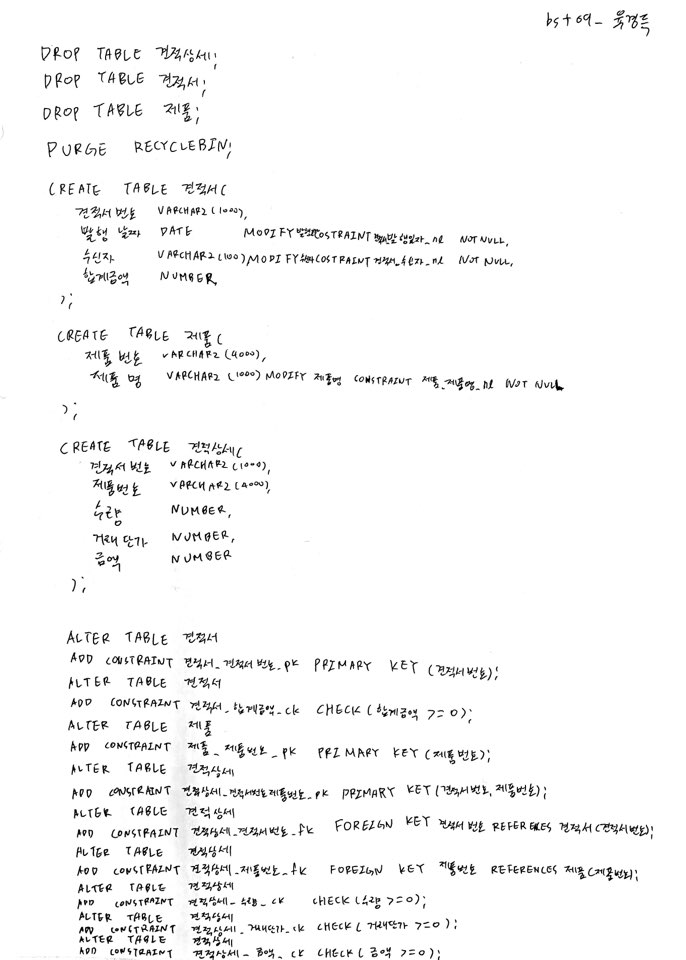 bs+09_ 육경득
DROP TABLE 견적상세;
DROP TABLE 견적서;
DROP TABLE 제품;
PURGE RECYCLEBIN;
CREATE TABLE 견적서(
견적서 번호 VARCHAR2(1000),
발행 날짜 DATE MODIFY COSTRAINT NOT NULL,
수신자 VARCHAR2(100) MODIFY COSTRAINT 견적서_수신자_nl NOT NULL,
합계금액 NUMBER
);
CREATE TABLE 제품(
제품 번호 VARCHAR2(4000),
제품 명 VARCHAR2(1000) MODIFY 제품명 CONSTRAINT 제품_제품명_nl NOT NULL
);
CREATE TABLE 견적상세(
견적서 번호 VARCHAR2(1000),
제품번호 VARCHAR2(4000),
수량 NUMBER,
거래 단가 NUMBER,
금액 NUMBER
);
ALTER TABLE 견적서
ADD CONSTRAINT 견적서_견적서 번호_pk PRIMARY KEY (견적서번호);
ALTER TABLE 견적서
ADD CONSTRAINT 견적서_합계금액_ck CHECK(합계금액 >=0);
ALTER TABLE 제품
ADD CONSTRAINT 제품_제품번호_pk PRIMARY KEY(제품번호);
ALTER TABLE 견적상세
ADD CONSTRAINT 견적상세_견적서번호제품번호_pk PRIMARY KEY(견적서번호, 제품번호);
ALTER TABLE 견적상세
ADD CONSTRAINT 견적상세_견적서번호_fk FOREIGN KEY 견적서 번호 REFERENCES 견적서(견적서번호);
ALTER TABLE 견적상세
ADD CONSTRAINT 견적상세_제품번호_fk FOREIGN KEY 제품번호 REFERENCES 제품(제품번호);
ALTER TABLE 견적상세
ADD CONSTRAINT 견적상세_수량_ck CHECK(수량 >=0);
ALTER TABLE 견적상세
ADD CONSTRAINT 견적상세_거래단가_ck CHECK(거래단가 >=0);
ALTER TABLE 견적상세
ADD CONSTRAINT 견적상세_금액_ck CHECK(금액 >=0);